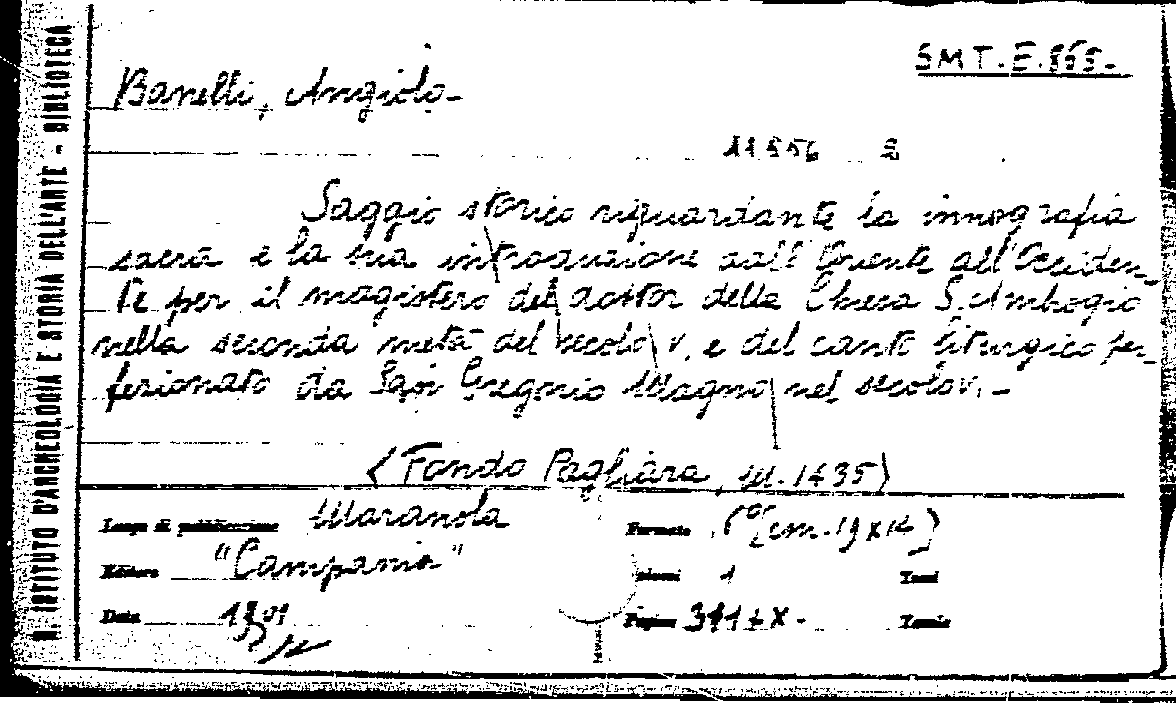 R. ISTITUTO D'ARCHEOLOGIA E STORIA DELL'ARTE - BIBLIOTECA
SMT. E.
Banelli, Angiolo-
11556
Saggio storico riguardante la innografia
sacra e la sua introduzione dall'Oriente all'Occiden-
te per il magistero del dottor della Chiesa S. Ambogio
nella seconda metà del secolo V, e del canto liturgico per-
fezionato da San Gregorio Magno nel secolo V. -
(Fondo Pagliara, n. 1435)
Luogo di pubblicazione Maranola
Formato 8° [cm. 19 x 14]
Editore "Campania"
Edizioni 1 Tomi
Data
Pagine 311 + X - Tavole